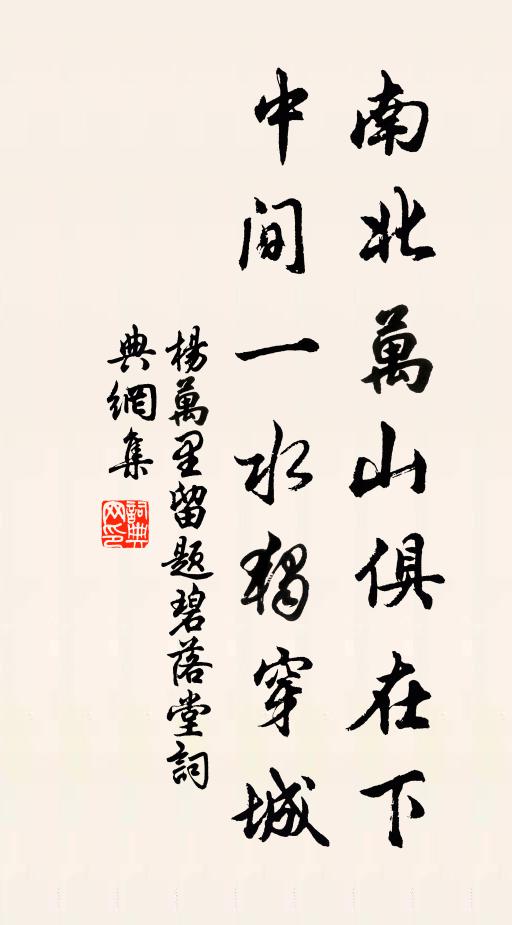 南北萬山俱在下
中间一水獨穿城
楊萬里留题碧落堂詞
典網集
詞典
网印